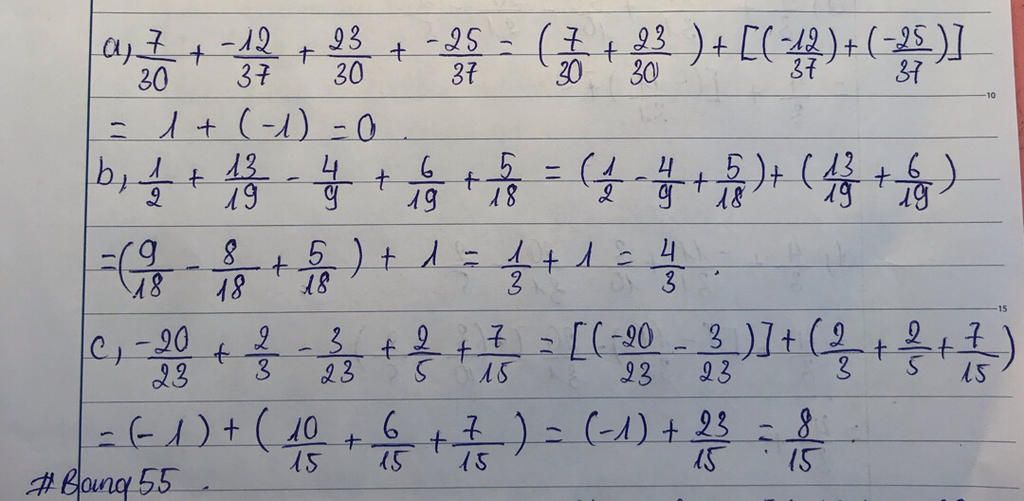 a, 7/30 + -12/37 + 23/30 + -25/37 = (7/30 + 23/30) + [(-12/37) + (-25/37)]
10
= 1 + (-1) = 0.
b, 1/2 + 13/19 - 4/9 + 6/19 + 5/18 = (1/2 - 4/9 + 5/18) + (13/19 + 6/19)
= (9/18 - 8/18 + 5/18) + 1 = 1/3 + 1 = 4/3.
15
c, -20/23 + 2/3 - 3/23 + 2/5 + 7/15 = [(-20/23 - 3/23)] + (2/3 + 2/5 + 7/15)
= (-1) + (10/15 + 6/15 + 7/15) = (-1) + 23/15 = 8/15.
#Bang55.